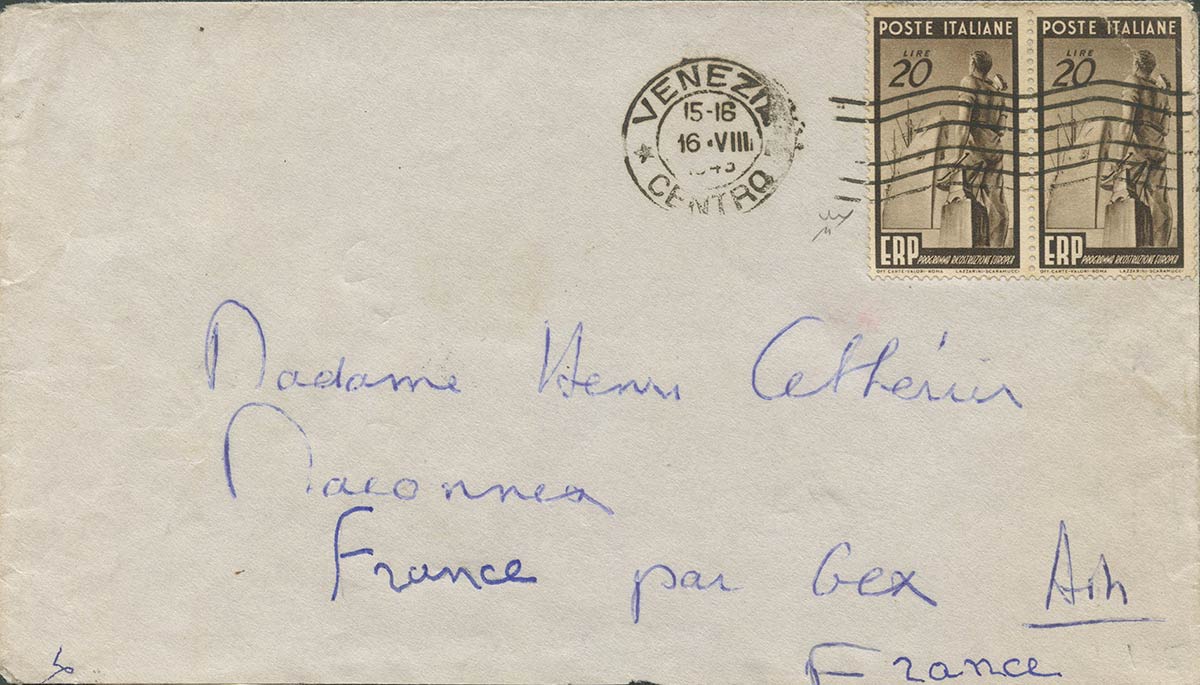 POSTE ITALIANE POSTE ITALIANE
LIRE LIRE
20 20
VENEZIA
15-16
16 •VIII
CENTRO
ERP PROGRAMMA RICOSTRUZIONE EUROPEA ERP PROGRAMMA RICOSTRUZIONE EUROPEA
OFF. CARTE-VALORI-ROMA LAZZERINI-SCARAMUCCI OFF. CARTE-VALORI-ROMA LAZZERINI-SCARAMUCCI
Madame Henri
Maconnex
France par Gex Ain
France